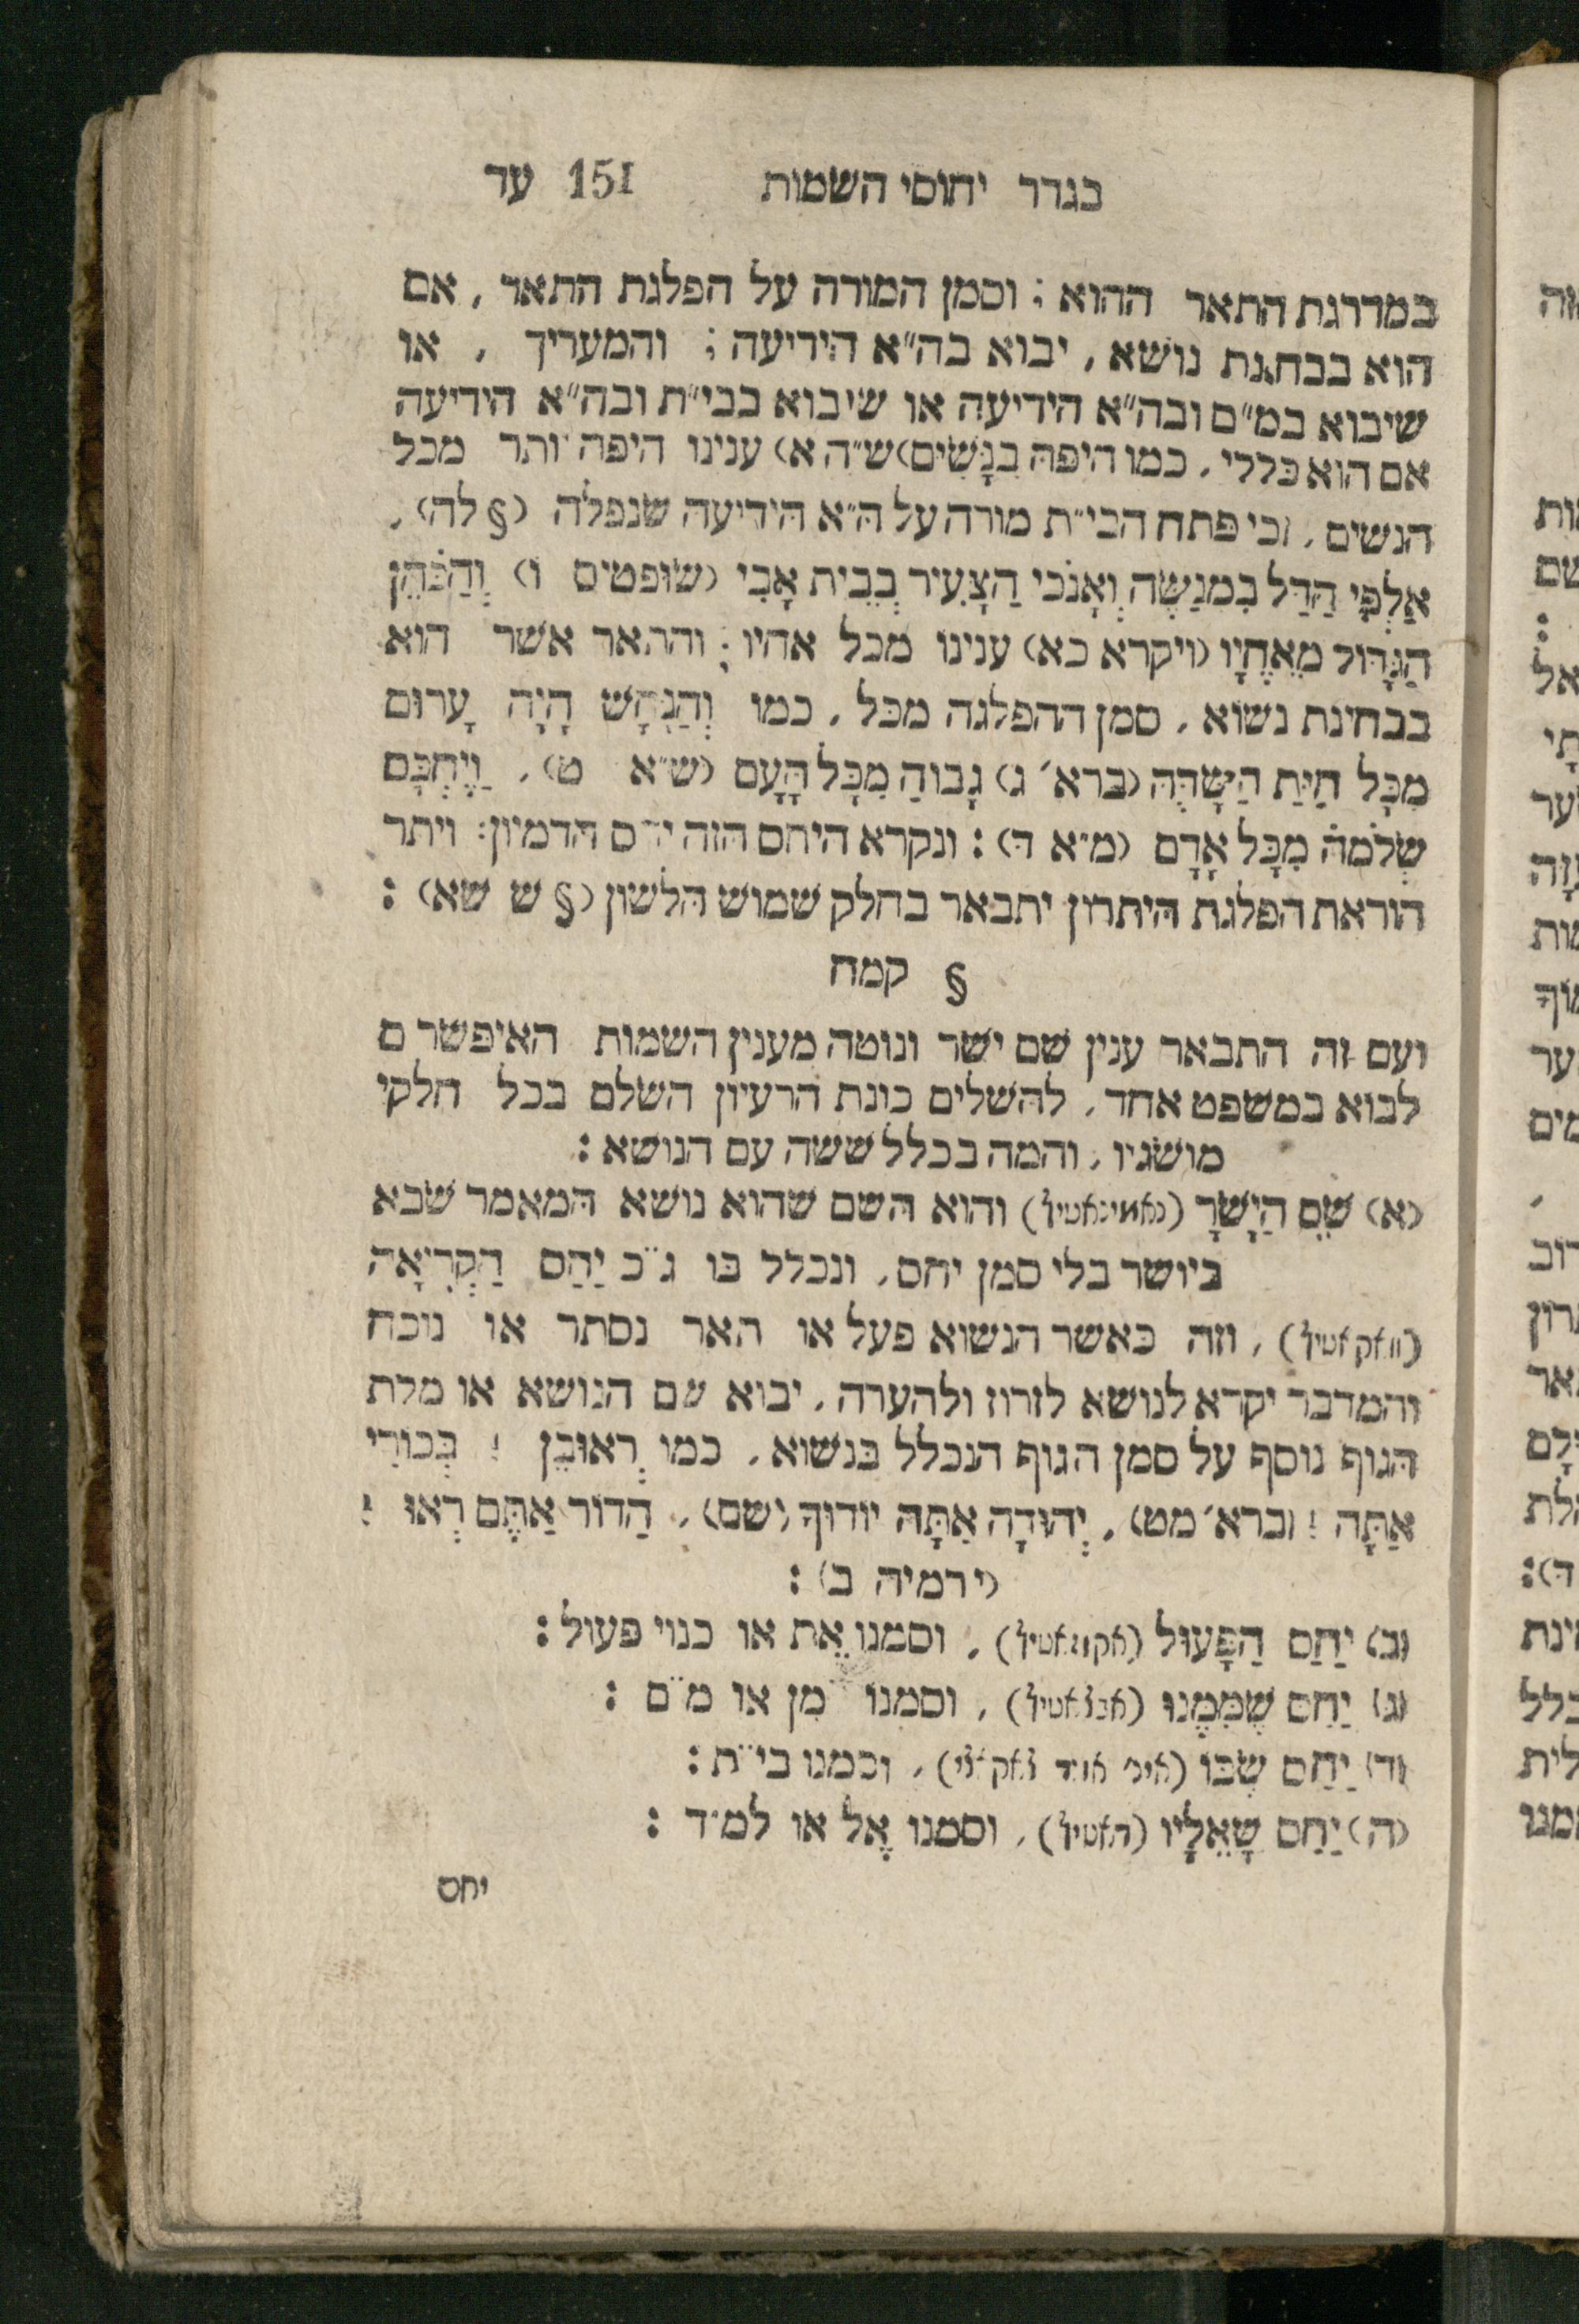 בגדר יחוסי השמות 151 עד
במדרגת התאר ההוא ; וסמן המורה על הפלגת התאר , אם
הוא בבחגת נושא , יבוא בה״א הידיעה ; והמעריך , או
שיבוא במ״ם ובה״א הידיעה או שיבוא בבי״ת ובה״א הידיעה
אם הוא כללי , כמו היפה בַנָּשִׁים (ש״ה א) ענינו היפה יותר מכל
הנשים , כי פתח הבי״ת מורה על ה״א הידיעה שנפלה (§ לה) ,
אַלְפִּי הַדַּל בִּמְנַשֶּׁה וְאָנֹכִי הַצָּעִיר בְּבֵית אָבִי (שופטים ו) וְהַכֹּהֵן
הַגָּדוֹל מֵאֶחָיו (ויקרא כא) ענינו מכל אחיו ; והתאר אשר הוא
בבחינת נשוא , סמן ההפלגה מכל , כמו וְהַנָּחָשׁ הָיָה עָרוּם
מִכָּל חַיַּת הַשָּׂדֶה (ברא׳ ג) גָבוהַ מִכָּל הָעָם (ש״א ט) , וַיֶּחְכַּם
שְׁלֹמֹה מִכָּל אָדָם (מ״א ה) : ונקרא היחס הזה יחס הדמיון : ויתר
הוראת הפלגת היתרון יתבאר בחלק שמוש הלשון (§ ש שא) :
§ קמח
ועם זה התבאר ענין שם ישר ונוטה מענין השמות האיפשר ם
לבוא במשפט אחד , להשלים כונת הרעיון השלם בכל חלקי
מושגיו , והמה בכלל ששה עם הנושא :
(א) שֵׁם הַיָשָׁר (נאמינאטיף) והוא השם שהוא נושא המאמר שבא
ביושר בלי סמן יחס , ונכלל בו ג״כ יַחַס הַקְרִיאָה
(וואקאטיף) , וזה כאשר הנשוא פעל או תאר נסתר או נוכח
והמדבר יקרא לנושא לזרוז ולהערה , יבוא עם הנושא או מלת
הגוף נוסף על סמן הגוף הנכלל בנשוא , כמו רְאוּבֵן ! בְּכוֹרִי
אַתָּה ! (ברא׳ מט) , יְהוּדָה אַתָּה יוֹדוּךָ (שם) , הַדוֹר אַתֶּם רְאוּ !
(ירמיה ב) :
(ב) יַחַס הַפָּעוּל (אקוזאטיף) , וסמנו אֶת או כנוי פעול :
(ג) יַחַס שֶׁמִּמֶּנוּ (אבלאטיף) , וסמנו מִן או מ״ם :
(ד) יַחַס שֶׁבּוֹ , וסמנו בי״ת :
(ה) יַחַס שֶׁאֵלָיו (דאטיף) , וסמנו אֶל או למ״ד :
יחס